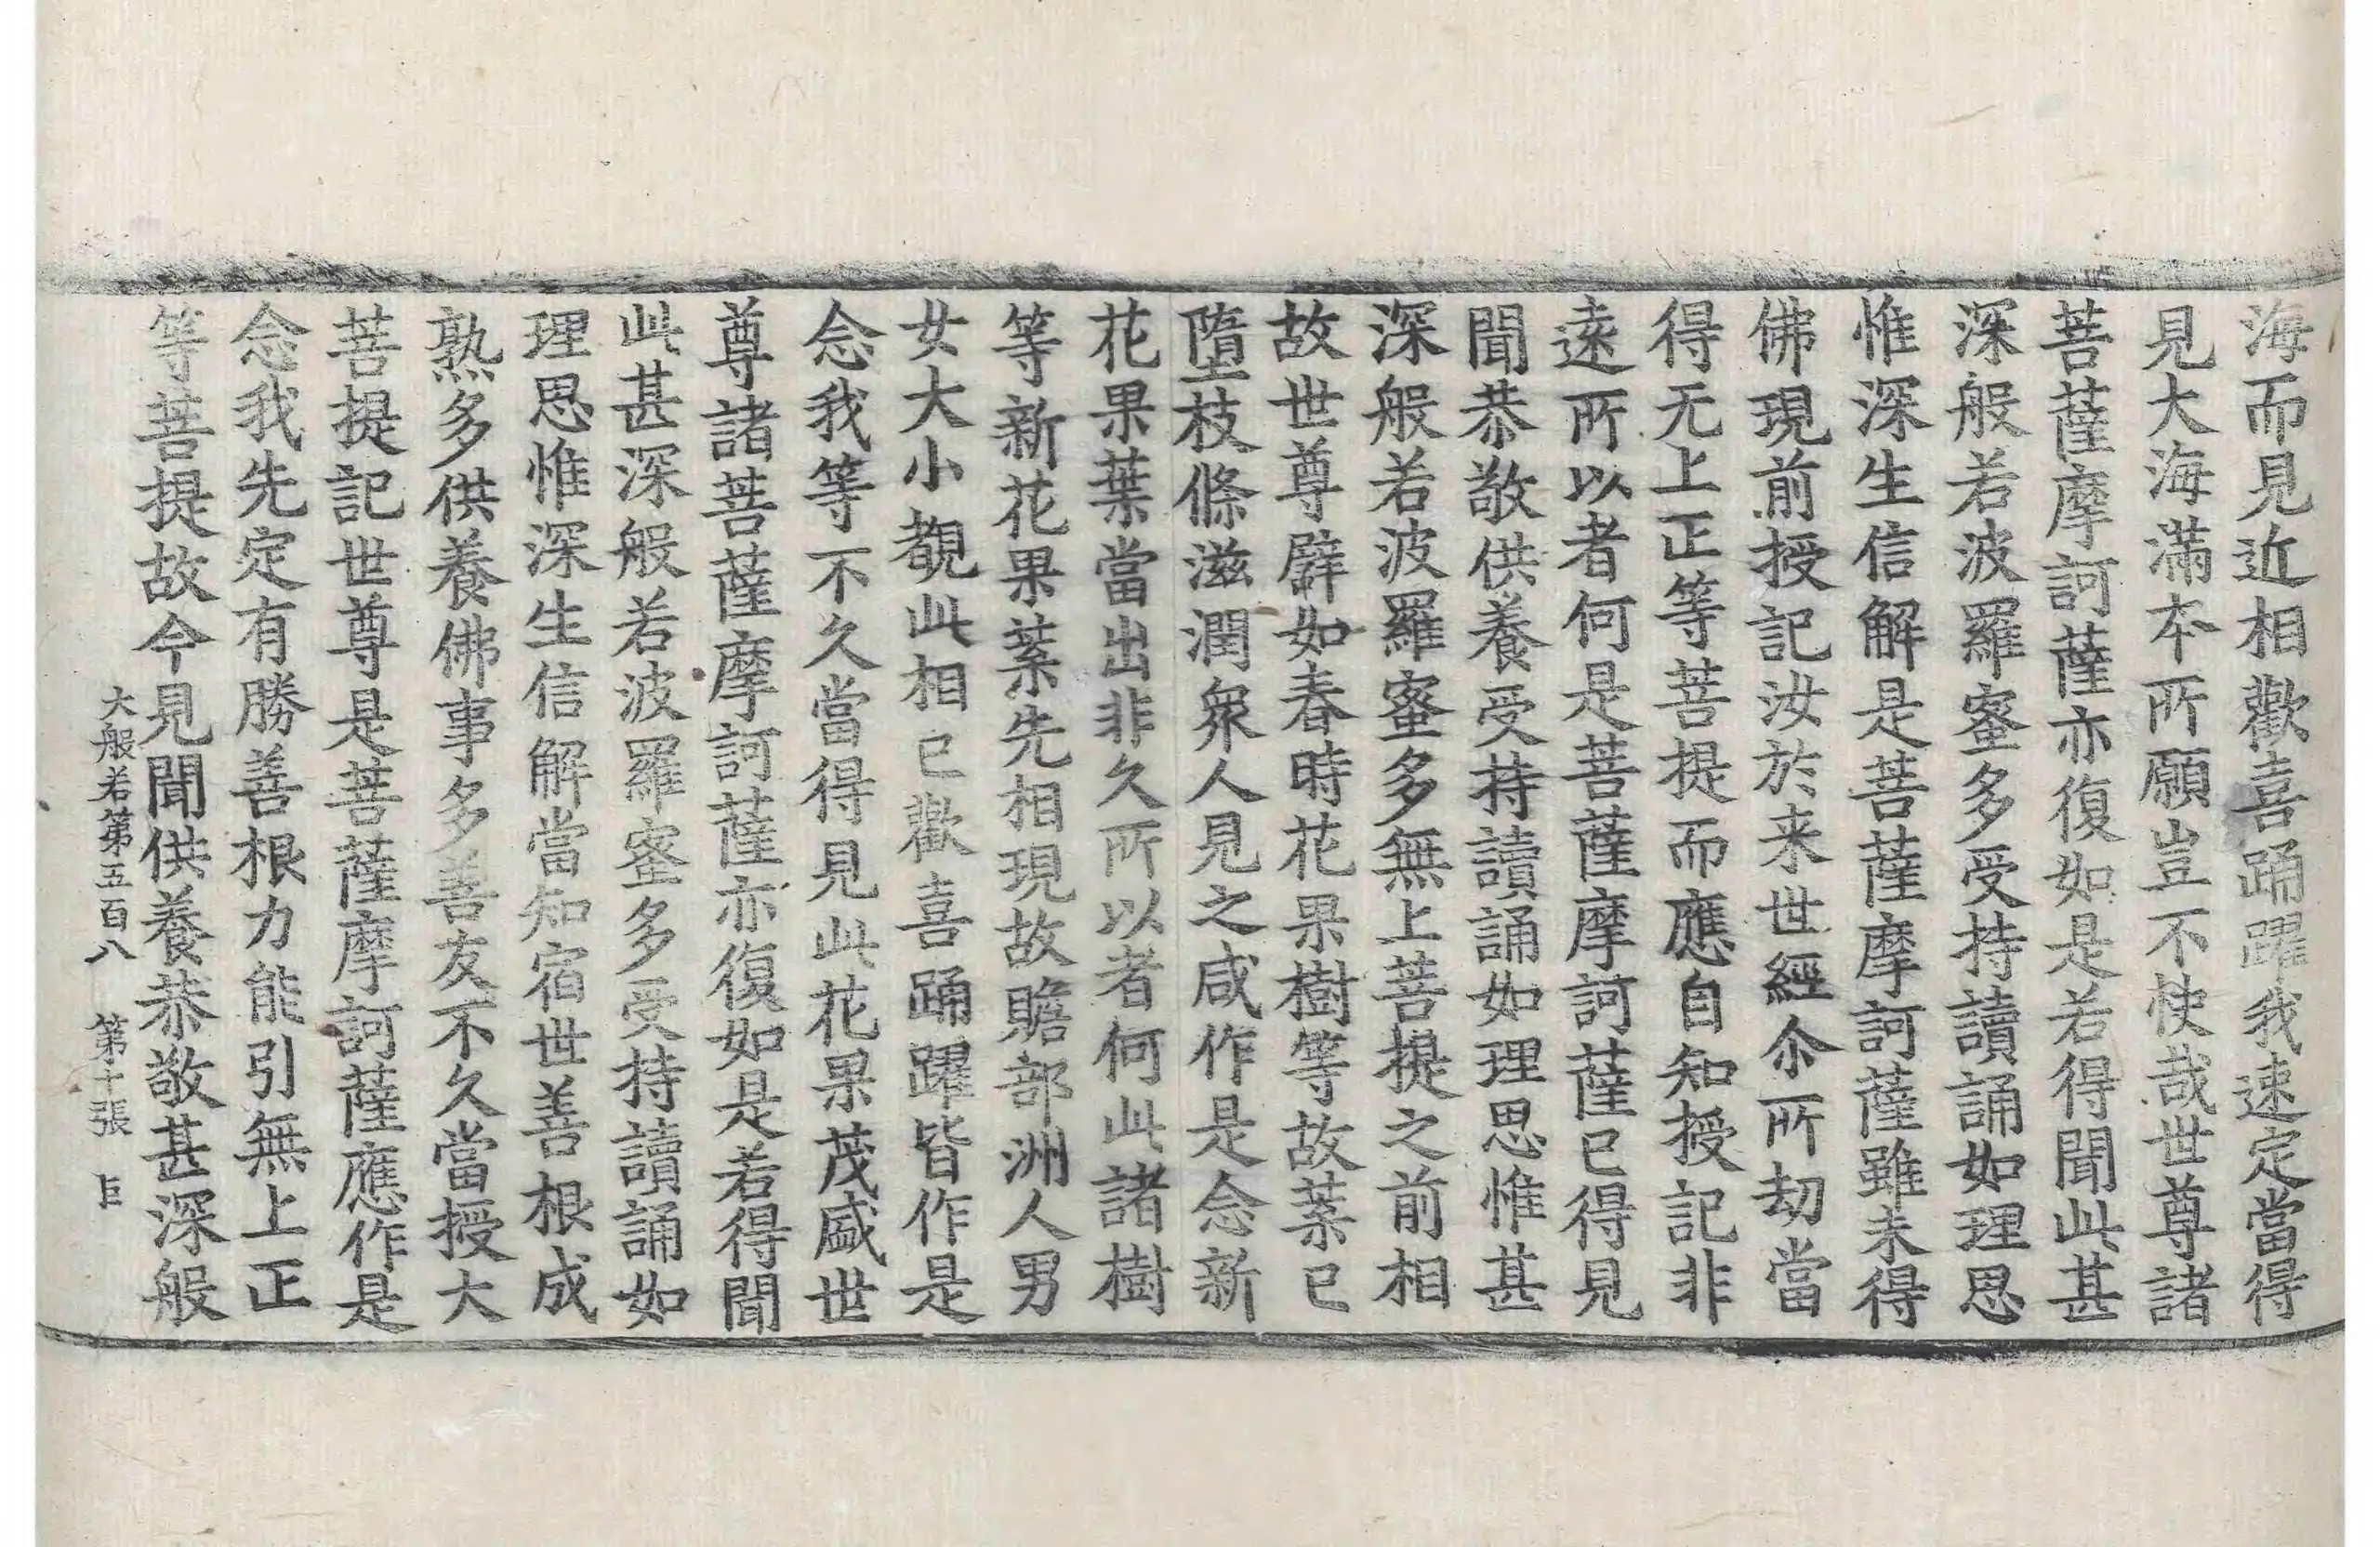 海而見近相歡喜踊躍我速定當得
見大海滿本所願豈不快哉世尊諸
菩薩摩訶薩亦復如是若得聞此甚
深般若波羅蜜多受持讀誦如理思
惟深生信解是菩薩摩訶薩雖未得
佛現前授記汝於来世經尒所劫當
得无上正等菩提而應自知授記非
遠所以者何是菩薩摩訶薩已得見
聞恭敬供養受持讀誦如理思惟甚
深般若波羅蜜多無上菩提之前相
故世尊譬如春時花果樹等故葉已
墮枝條滋潤衆人見之咸作是念新
花果葉當出非久所以者何此諸樹
等新花果葉先相現故贍部洲人男
女大小覩此相已歡喜踊躍皆作是
念我等不久當得見此花果茂盛世
尊諸菩薩摩訶薩亦復如是若得聞
此甚深般若波羅蜜多受持讀誦如
理思惟深生信解當知宿世善根成
熟多供養佛事多善友不久當授大
菩提記世尊是菩薩摩訶薩應作是
念我先定有勝善根力能引無上正
等菩提故今見聞供養恭敬甚深般
大般若第五百八 第十張 㠯